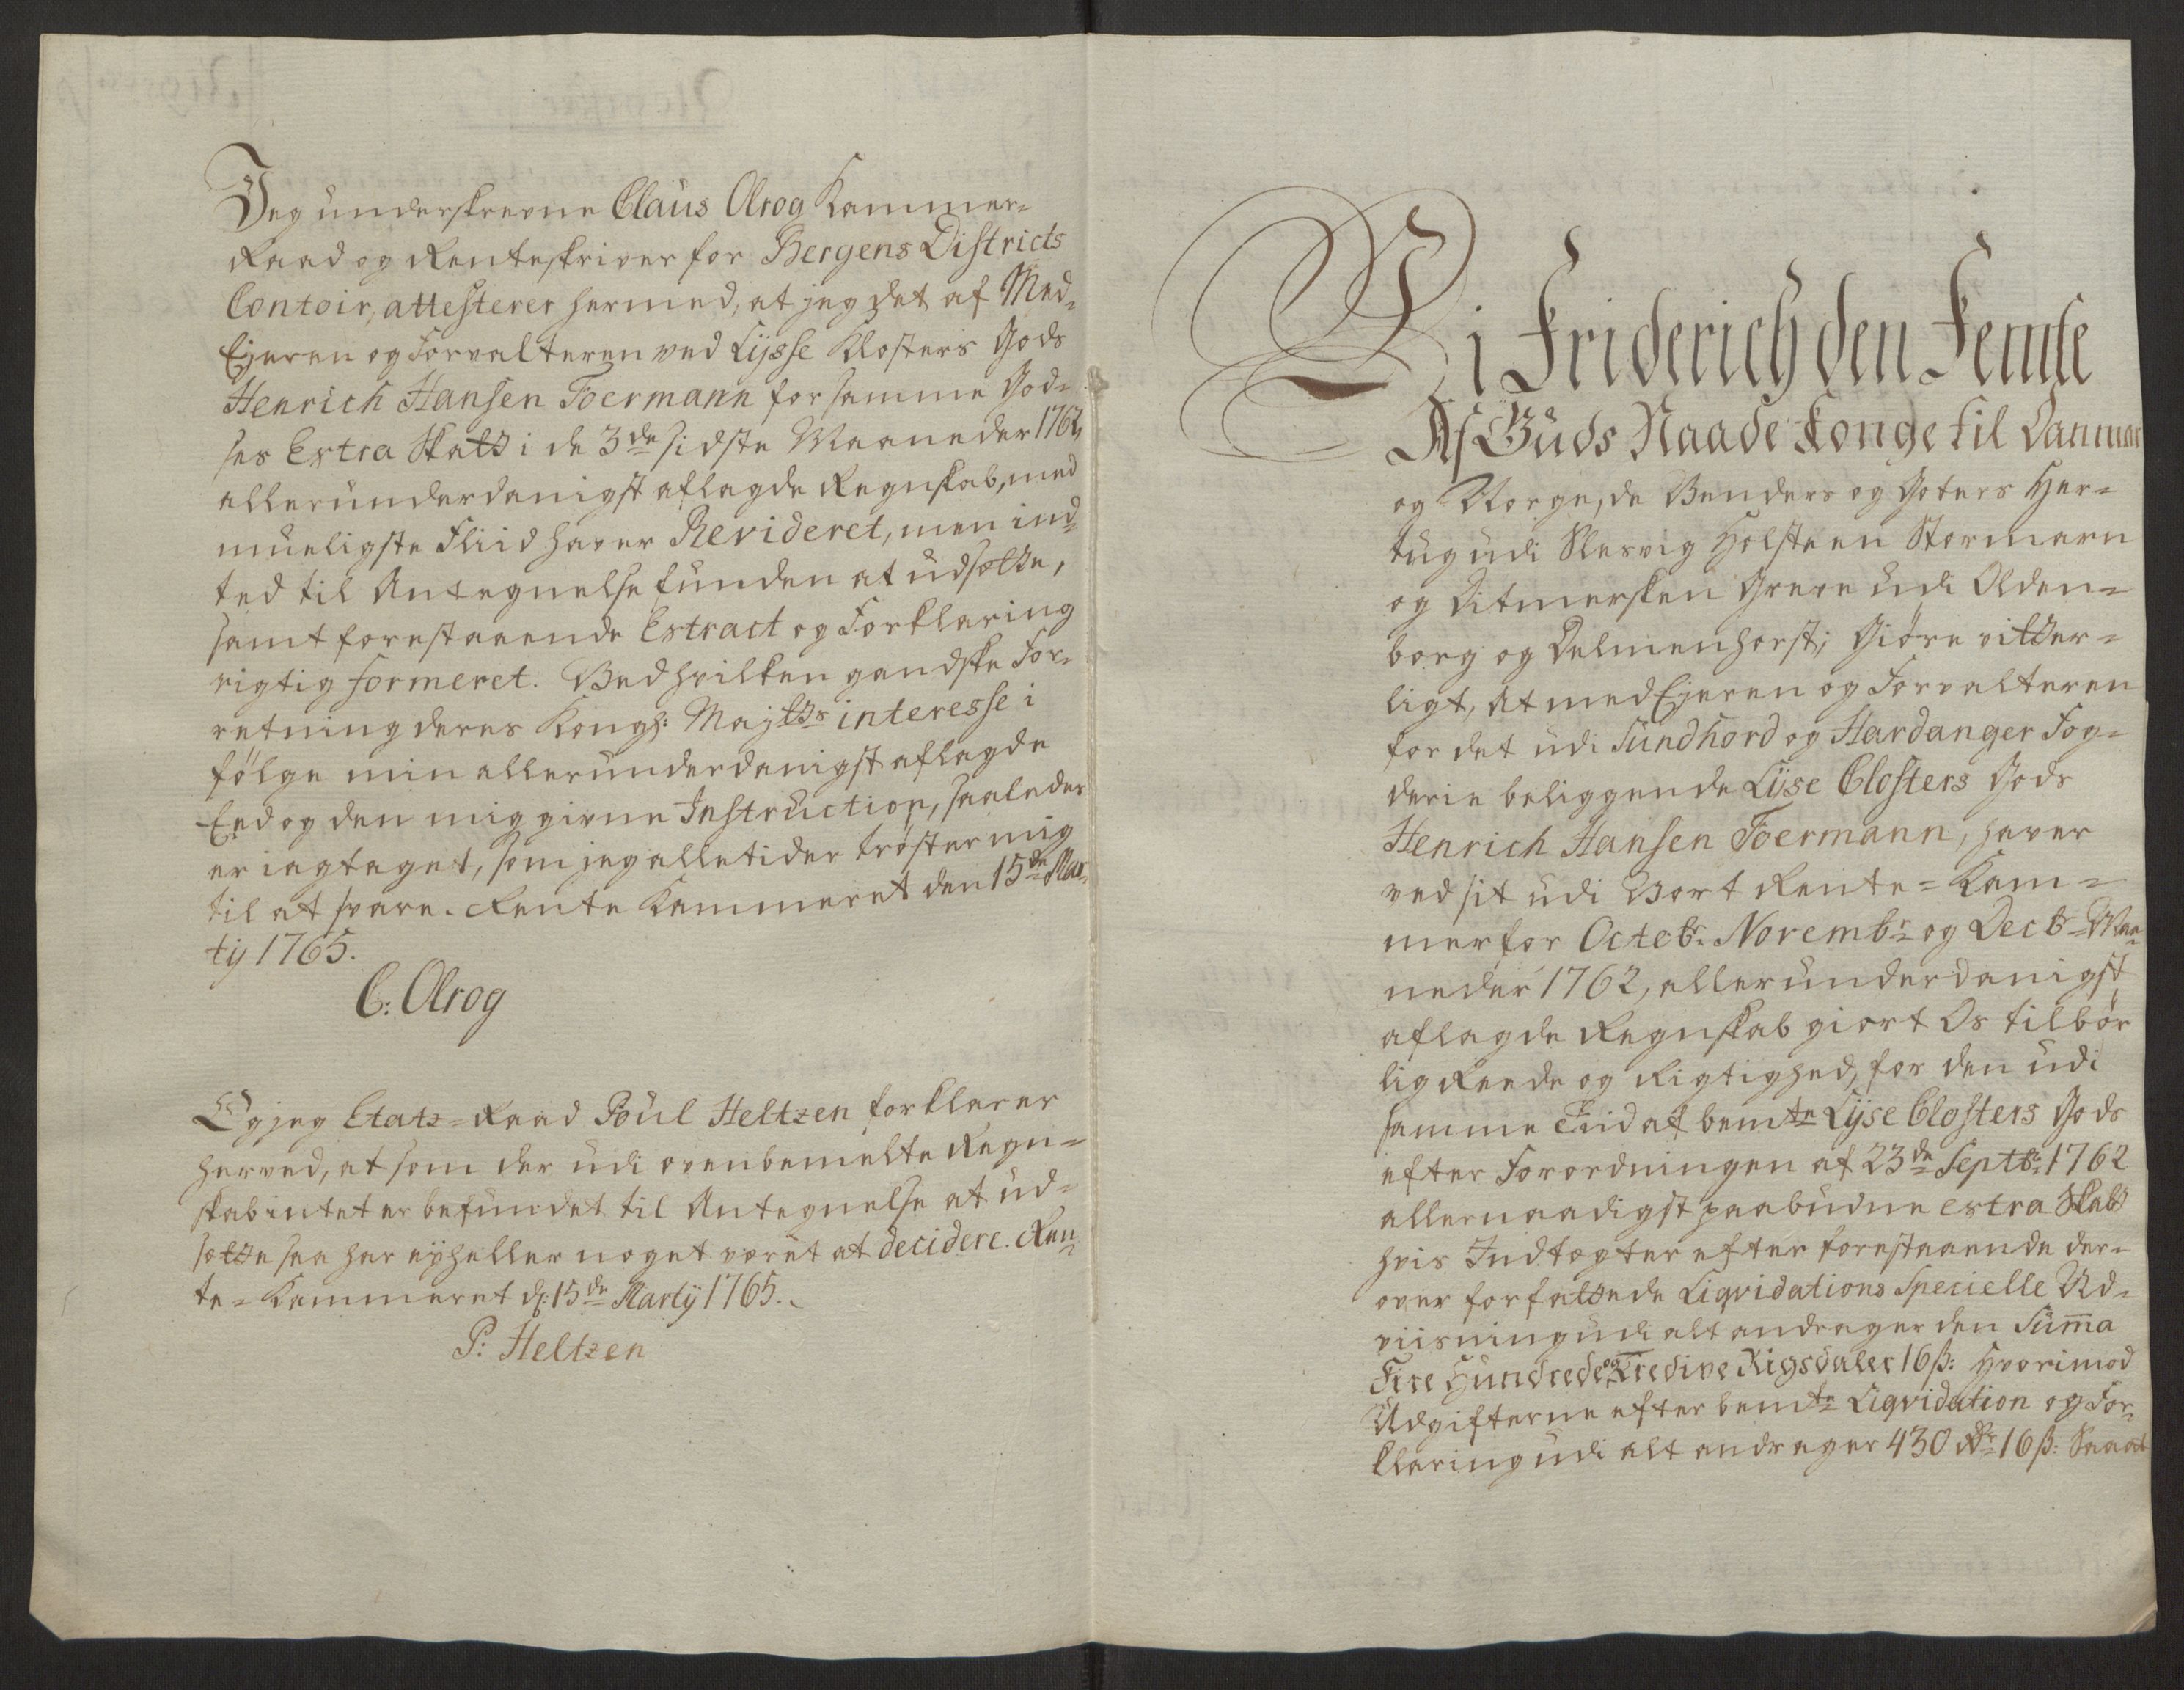 Jeg underskrevne Claus Olrog Kammer-
Raad og Renteskriver for Bergens Districts
Contoir, attesterer hermed, at jeg det af Med-
Ejeren og Forvalteren ved Lysse Klosters Gods
Henrich Hansen Foermann for samme God-
ses Extra Skatt i de 3de sidste Maaneder 1762,
allerunderdanigst aflagde Regnskab, med
mueligste Fliid haver Revideret, men ind-
ted til Antegnelse funden at udsætte,
samt forestaaende Extract og Forklaring
rigtig formeret. Ved hvilken gandske For-
retning deres Kongl: Maytts interesse i
følge min allerunderdanigst aflagde
Eed og den mig givne Instruction, saaledes
er iagtaget, som jeg alletider trøster mig
til at svare. Rente Kammeret den 15de Mar-
ty 1765.
C: Olrog
Og jeg Etatz-Raad Poul Heltzen forklarer
herved, at som der udi ovenbemelte Regn-
skab intet er befundet til Antegnelse at ud-
sætte saa har eyheller noget været at decidere. Ren-
te-Kammeret d: 15de Marty 1765.
P: Heltzen
Vi Friderich den Femte
Af Guds Naade Konge til Danmar
og Norge, de Venders og Goters Her-
tug udi Slesvig Holsteen Stormarn
og Ditmersken Greve udi Olden-
borg og Delmenhorst; Giøre vitter-
ligt, At medEjeren og Forvalteren
for det udi Sundhord og Hardanger Fog-
derie beliggende Lyse Closters Gods
Henrich Hansen Foermann, haver
ved sit udi Vort Rente-Kam-
mer for Octobr. Novembr og Decbr Maa-
neder 1762, allerunderdanigst
aflagde Regnskab giort Os tilbør
lig Reede og Rigtighed, for den udi
samme Tiid af bemte Lyse Closters Gods
efter Forordningen af 23de Septbr: 1762
allernaadigst paabudne extra Skatt
hvis Indtægter efter forestaaende der-
over forfattede Liqvidations Specielle Ud-
viisning udi alt andrager den Suma
Fire Hundrede og Tredive Rigsdaler 16 ß: Hvorimod
Udgifterne efter bemte Liqvidation og For-
klaring udi alt andrager 430 Rdr 16 ß: Saa at